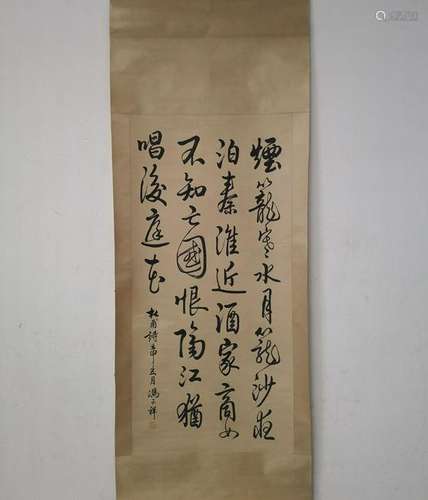 煙籠寒水月籠沙夜
泊秦淮近酒家商女
不知亡國恨隔江猶
唱後庭花
杜甫詩 五月馮子祥